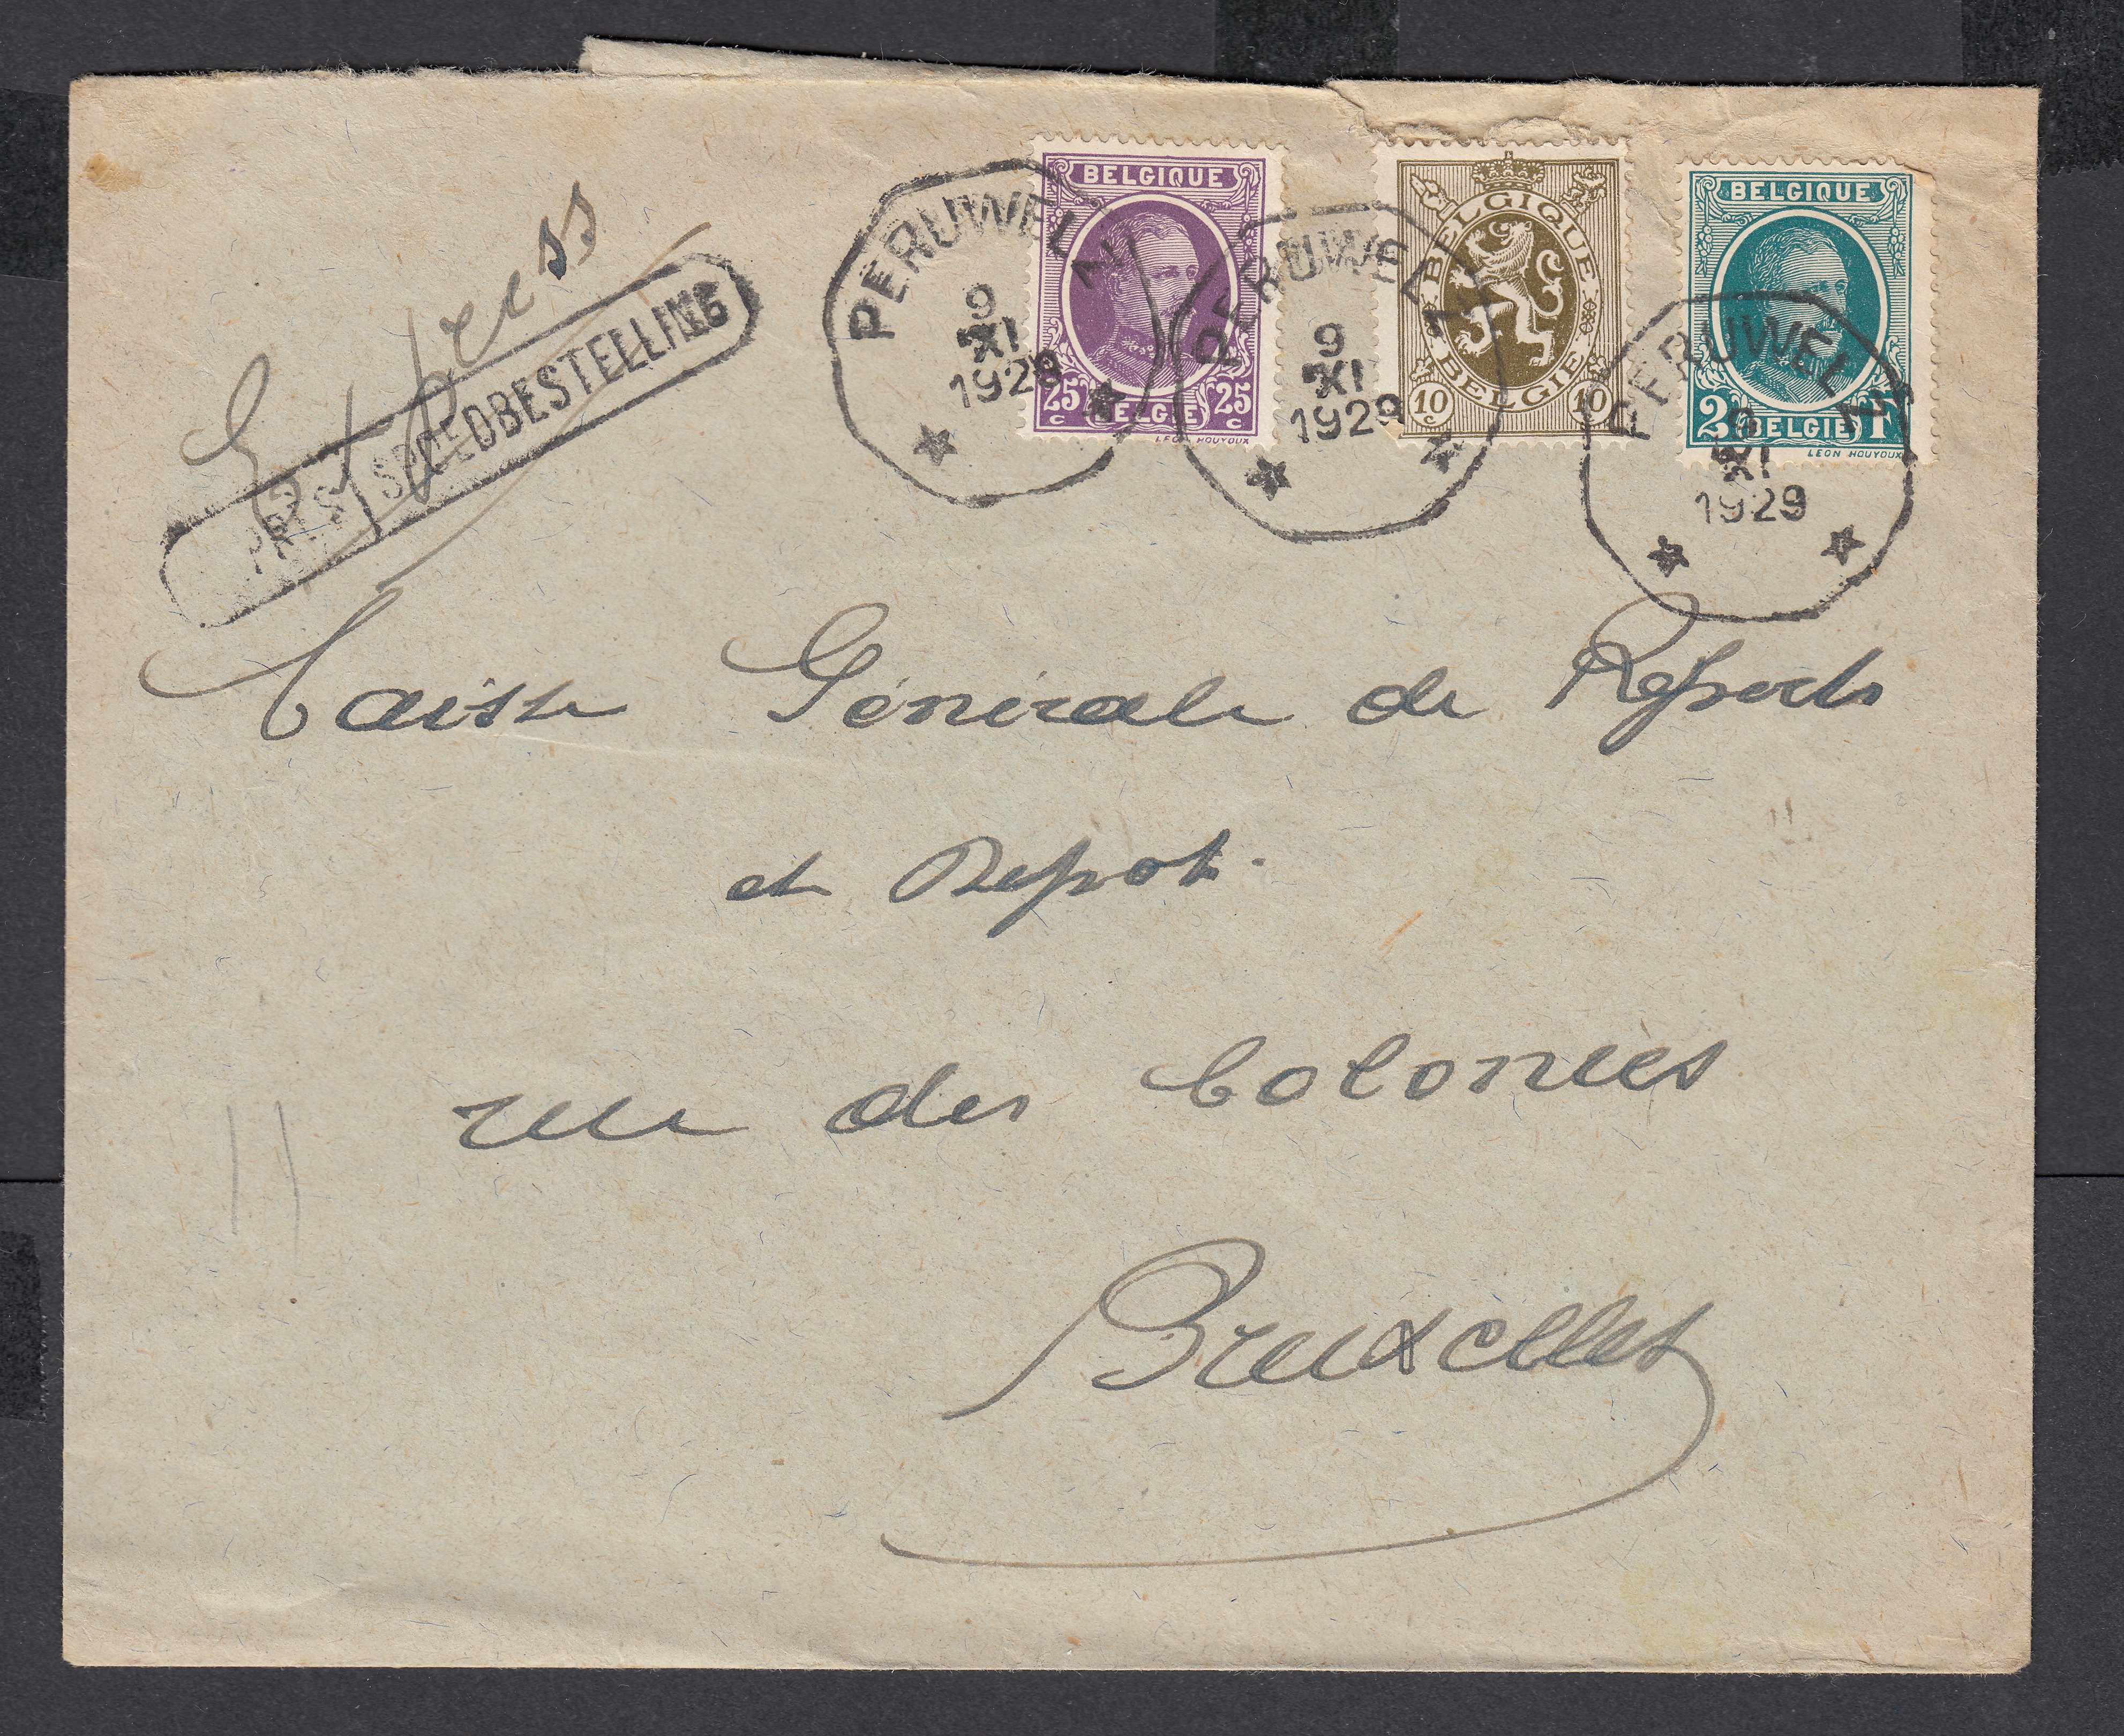 Express
EXPRÈS SPOEDBESTELLING
BELGIQUE
25 c BELGIE 25 c
LEON HOUYOUX
BELGIQUE
10 c BELGIE 10 c
BELGIQUE
2 BELGIE F
LEON HOUYOUX
PERUWELZ
9
XI
1929
PERUWELZ
9
XI
1929
PERUWELZ
9
XI
1929
Caisse Générale de Reports
et Depot.
rue des Colonies
Bruxelles